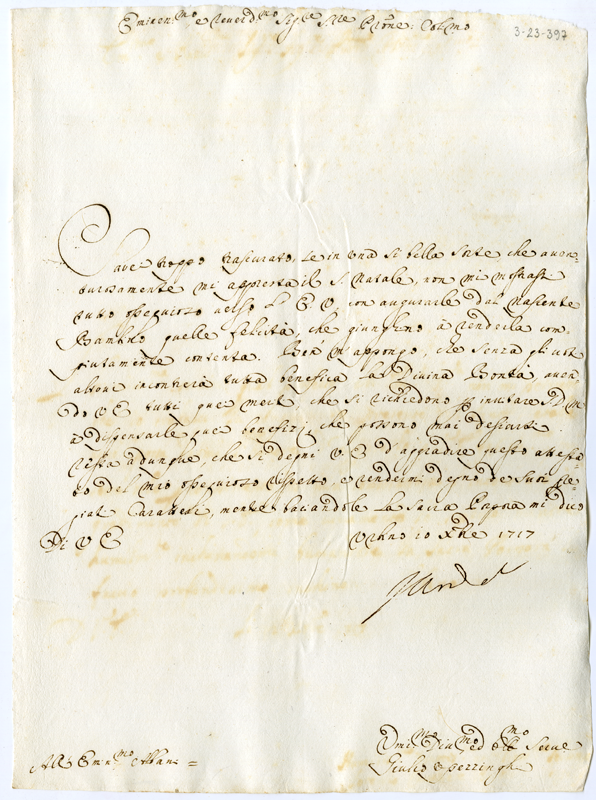 Eminen.mo e Reverd.mo Sig.re S.re Pròne: Col.mo
3-23-397
Sarei troppo trascurato, se in una si bella sorte che auuen-
turosamente mi appresta il S. Natale, non mi mostrassi
tutto ossequioso verso L'E.V. con augurarle dal Nascente
Bambino quelle felicità, che giungano à renderla com-
piutamente contenta. Ben m'appongo, che senza gli
altroue incontrerà tutta benefica La Diuina Bontà, auen-
do V.E. tutti que merti, che si richiedono p inuitare S.D.M.
à dispensarle que benefizj, che possono mai desiarsi.
Resta adunque, che si degni V.E. d'aggradire questo attesta-
to del mio ossequioso rispetto, e rendermi degno de suoi pre-
giati Caratteri, mentre baciandole La Sacra Porpora mi dico
Di V.E. Urbino 10 Xbre 1717
Umil.mo Diu.mo ed Obb.mo Serue
Giulio
All' Em.mo Albani =